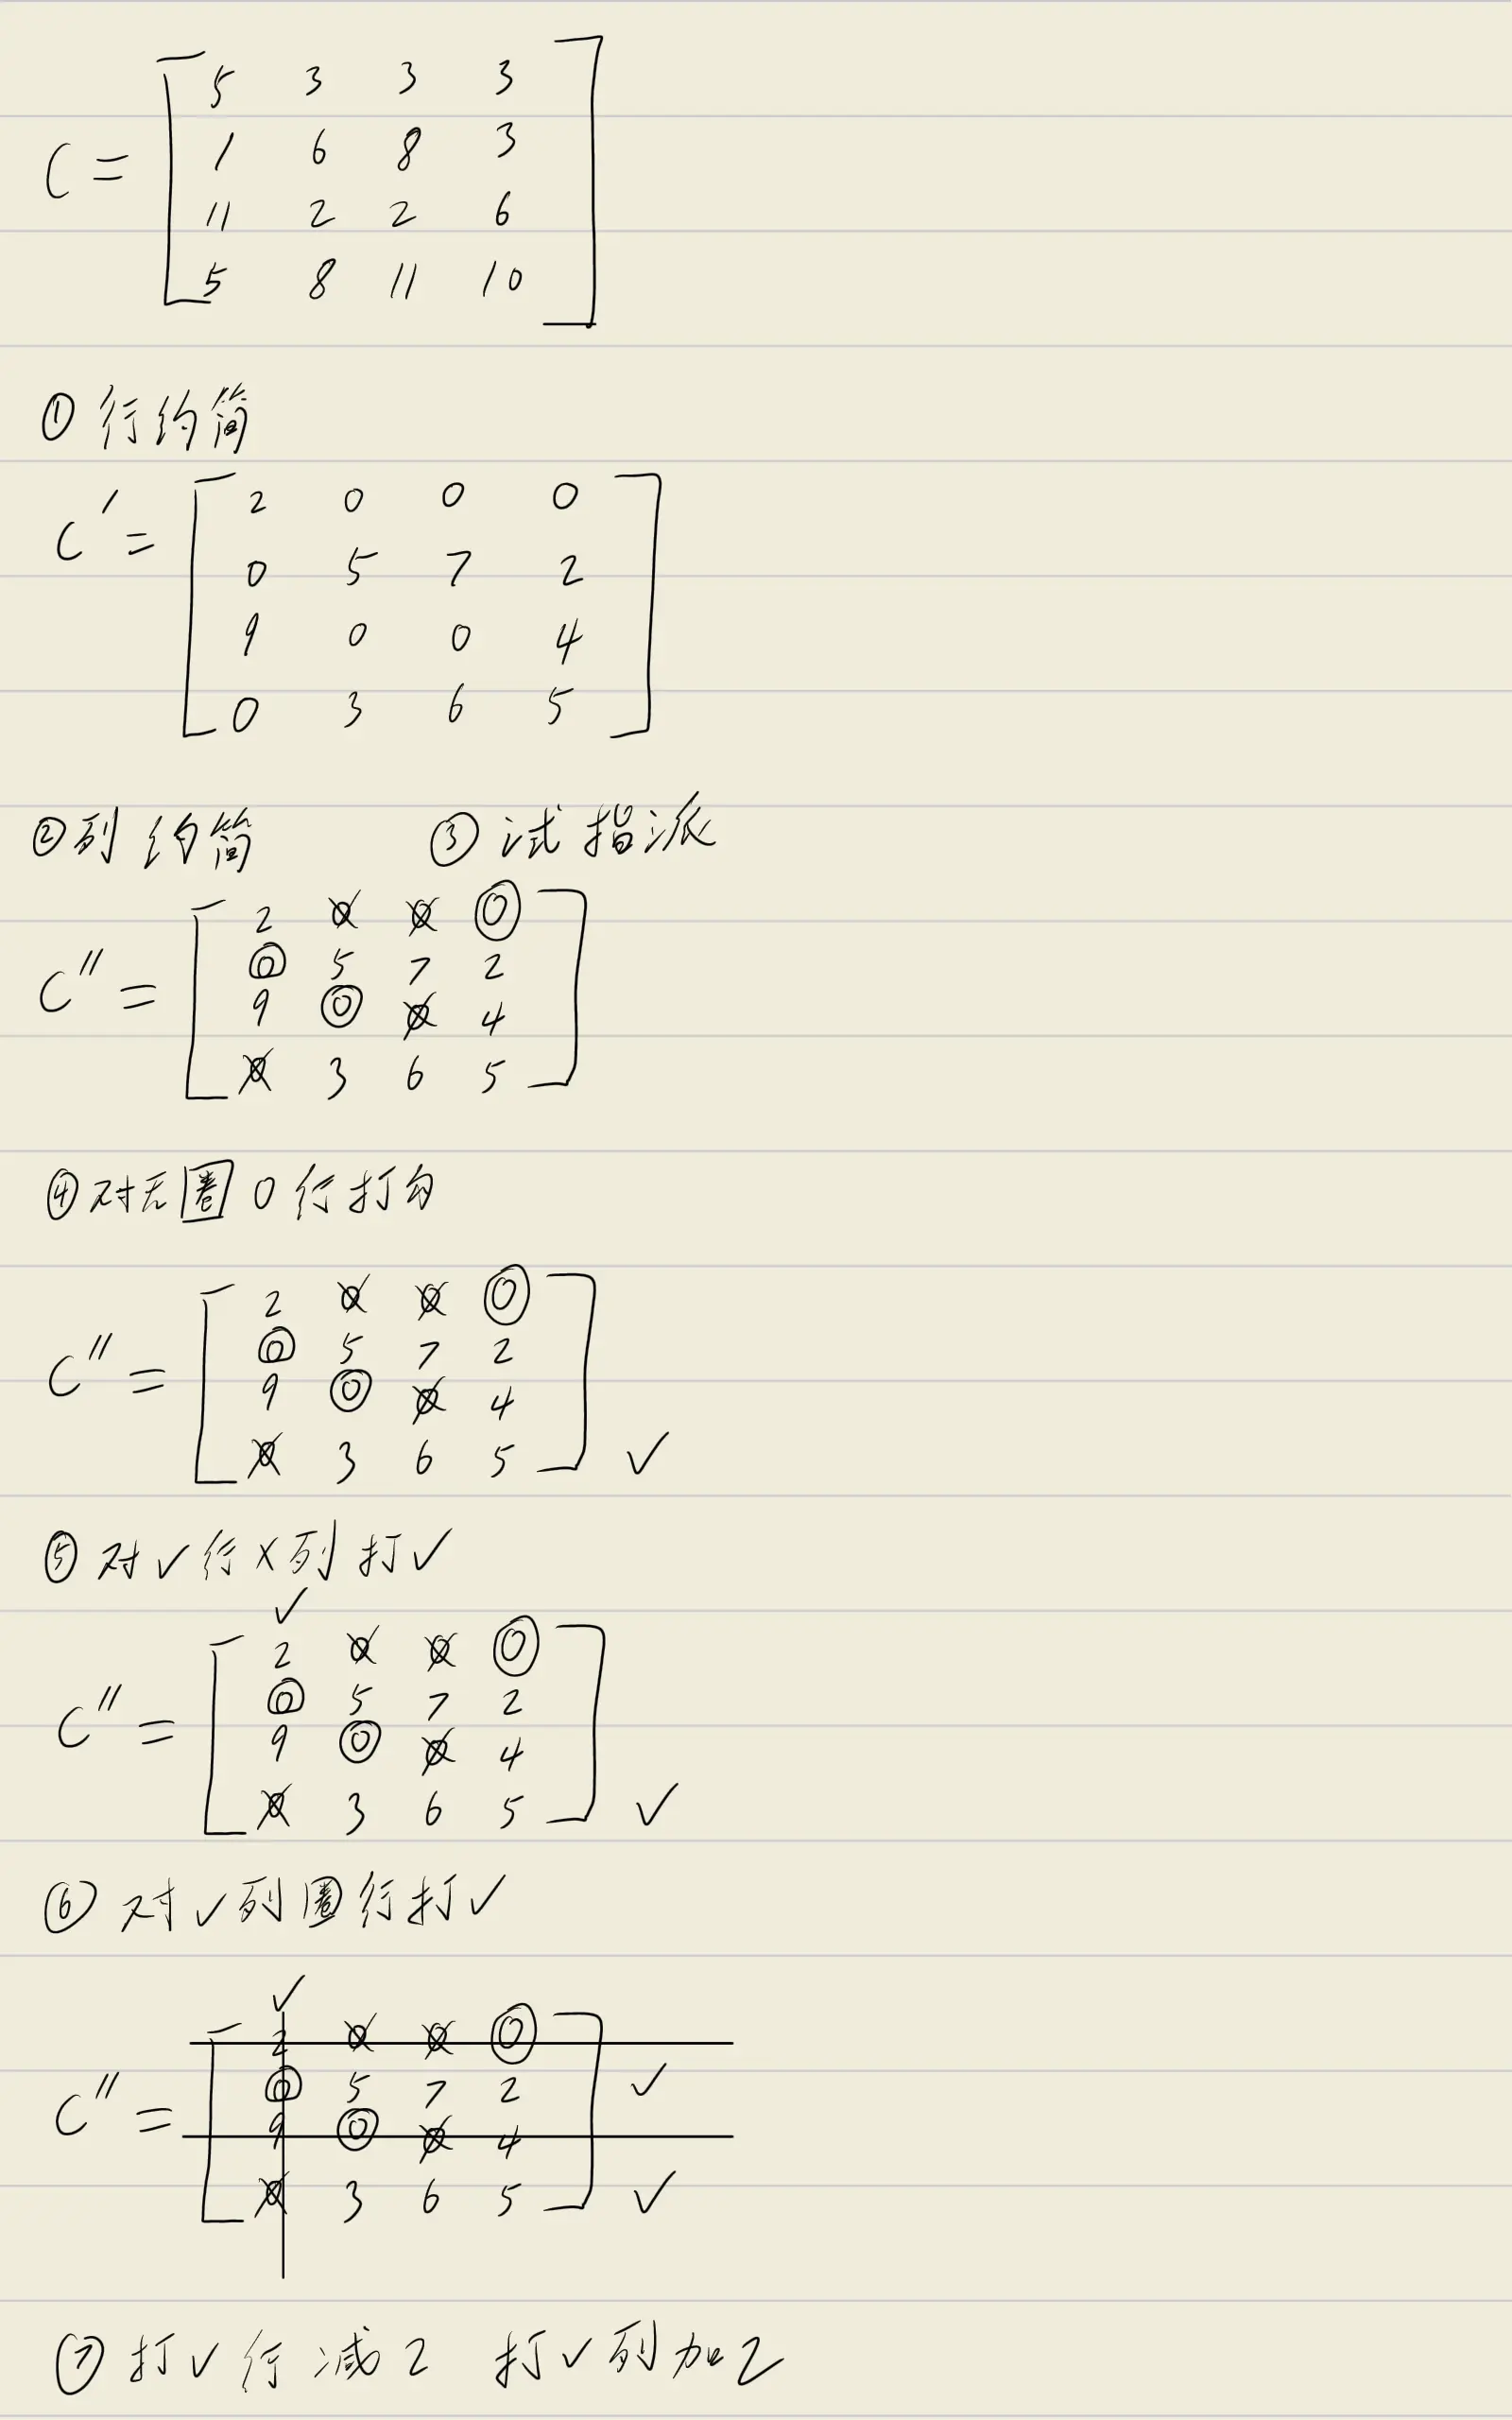 C = [ 5 3 3 3
1 6 8 3
11 2 2 6
5 8 11 10 ]
① 行约简
C′ = [ 2 0 0 0
0 5 7 2
9 0 0 4
0 3 6 5 ]
② 列约简 ③ 试指派
C″ = [ 2 0 0 0
0 5 7 2
9 0 0 4
0 3 6 5 ]
④ 对无圈0行打勾
C″ = [ 2 0 0 0
0 5 7 2
9 0 0 4
0 3 6 5 ] ✓
⑤ 对✓行X列打✓
✓
C″ = [ 2 0 0 0
0 5 7 2
9 0 0 4
0 3 6 5 ] ✓
⑥ 对✓列圈行打✓
✓
C″ = [ 2 0 0 0
0 5 7 2 ✓
9 0 0 4
0 3 6 5 ] ✓
⑦ 打✓行减2 打✓列加2